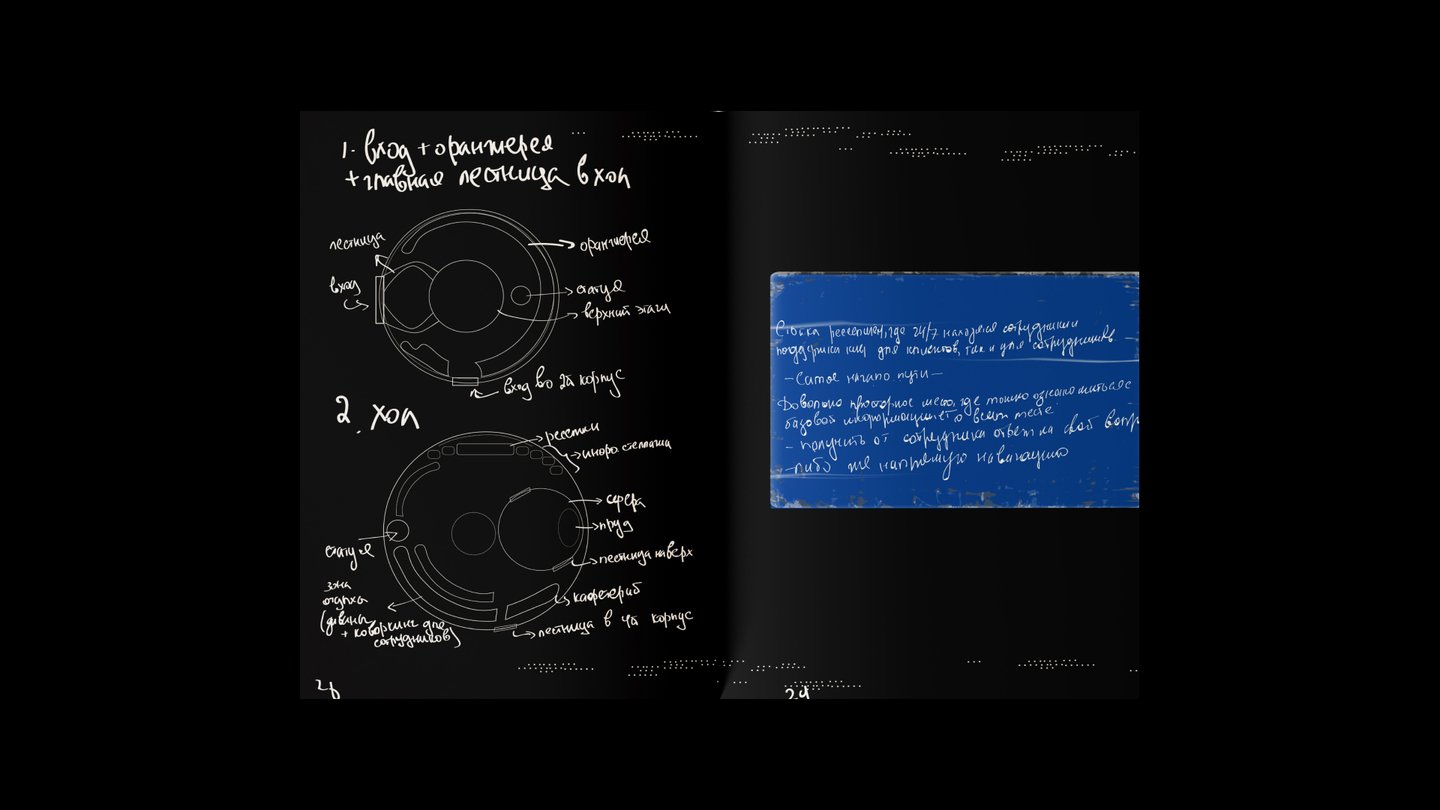 1. вход + оранжерея
+ главная лестница в хол
лестница
оранжерея
вход
статуя
верхний этаж
вход во 2й корпус
2. хол
ресепшн
инфо. стеллажи
сфера
пруд
статуя
лестница наверх
зона
отдыха
(диваны
+ коворкинг для
сотрудников)
кафетерий
лестница в 4й корпус
Стойка ресепшен, где 24/7 находятся сотрудники
поддержки как для клиентов, так и для сотрудников.
— Самое начало пути —
Довольно просторное место, где можно ознакомиться с
базовой информацией о всем
- получить от сотрудника ответ на свой вопр
- либо же напрямую
24